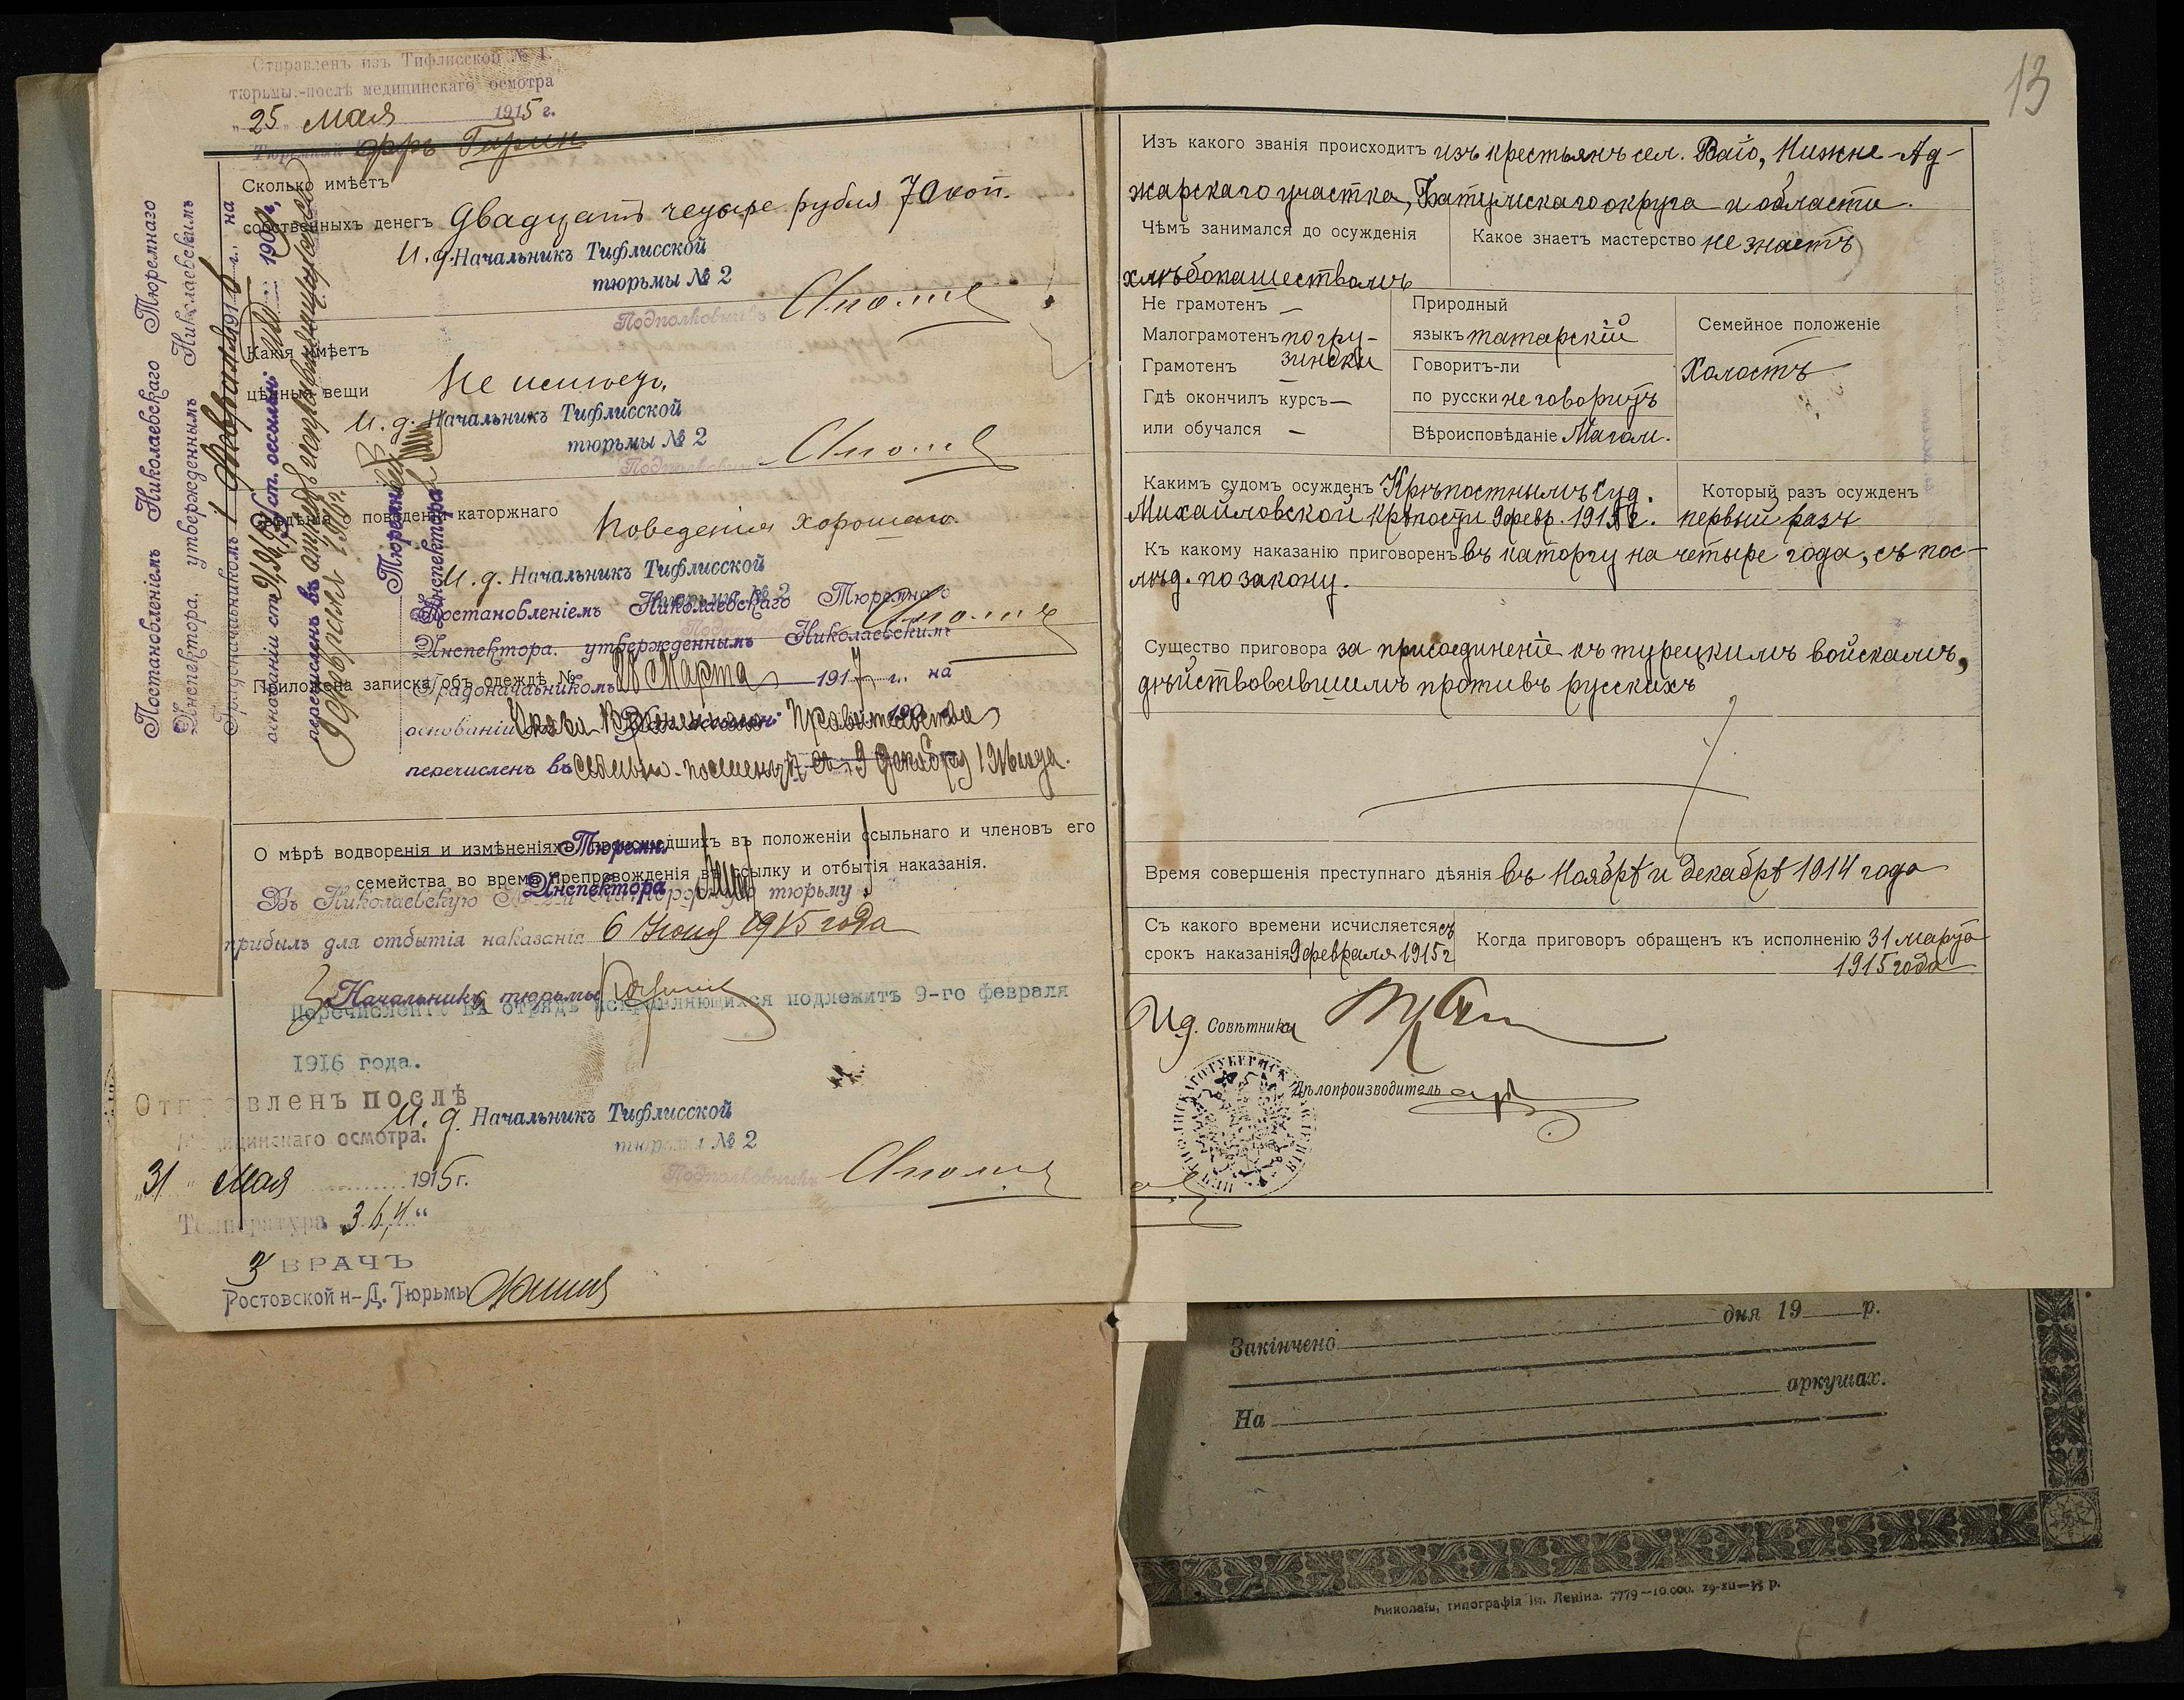 Отправленъ изъ Тифлисской № 1.
тюрьмы.-послѣ медицинскаго осмотра
"25" мая 1915 г.
Тюремный
Сколько имѣетъ
собственныхъ денегъ двадцать четыре рубля 70 коп.
И. д. Начальникъ Тифлисской
тюрьмы № 2
Подполковникъ
Какія имѣетъ
цѣнныя вещи Не имѣетъ.
И. д. Начальникъ Тифлисской
тюрьмы № 2
Подполковникъ
поведеніи каторжнаго Поведенія хорошаго.
И. д. Начальникъ Тифлисской
тюрьмы № 2
Постановленіемъ Николаевскаго Тюремнаго
Инспектора, утвержденнымъ Николаевскимъ
Приложена записка объ одеждѣ №
Градоначальникомъ Марта 1917 г. на
основаніи Указа Временнаго Правительства
перечисленъ въ ссыльно-поселенцы съ 9 Декабря 1916 года.
О мѣрѣ водворенія и измѣненіяхъ, происшедшихъ въ положеніи ссыльнаго и членовъ его
семейства во время препровожденія въ ссылку и отбытія наказанія.
Тюремн.
Инспектора
Въ Николаевскую тюрьму
прибылъ для отбытія наказанія 6 Іюня 1915 года
Начальникъ тюрьмы
Перечисленію въ отрядъ исправляющихся подлежитъ 9-го февраля
1916 года.
И. д. Начальникъ Тифлисской
тюрьмы № 2
Подполковникъ
Отправленъ послѣ
медицинскаго осмотра.
"31" мая 1915 г.
Температура 36,4"
ВРАЧЪ
Ростовской н-Д. Тюрьмы
Постановленіемъ Николаевскаго Тюремнаго
Инспектора, утвержденнымъ Николаевскимъ
Градоначальникомъ 1 Февраля 1916 г., на
основаніи ст. уст. ссыльн.
перечисленъ въ отрядъ исправляющихся
9 февраля 1916 г.
Тюремн.
Инспектора
13
Изъ какого званія происходитъ изъ крестьянъ сел. Ваіо, Нижне-Ад-
жарскаго участка, Батумскаго округа и области.
Чѣмъ занимался до осужденія
хлѣбопашествомъ
Какое знаетъ мастерство не знаетъ
Не грамотенъ —
Малограмотенъ по гру-
Грамотенъ зински
Гдѣ окончилъ курсъ —
или обучался —
Природный
языкъ татарскій
Говоритъ-ли
по русски не говоритъ
Вѣроисповѣданіе Магом.
Семейное положеніе
Холостъ
Какимъ судомъ осужденъ Крѣпостнымъ Суд.
Михайловской крѣпости 9 февр. 1915 г.
Который разъ осужденъ
первый разъ
Къ какому наказанію приговоренъ въ каторгу на четыре года, съ пос-
лѣд. по закону.
Существо приговора за присоединеніе къ турецкимъ войскамъ,
дѣйствовавшимъ противъ русскихъ
Время совершенія преступнаго дѣянія въ Ноябрѣ и Декабрѣ 1914 года
Съ какого времени исчисляется съ
срокъ наказанія 9 февраля 1915 г
Когда приговоръ обращенъ къ исполненію 31 марта
1915 года
И д. Совѣтника
Дѣлопроизводитель
дня 19 р.
Закінчено
аркушах.
На
Миколаїв, типографія ім. Леніна. 7779—10.000.